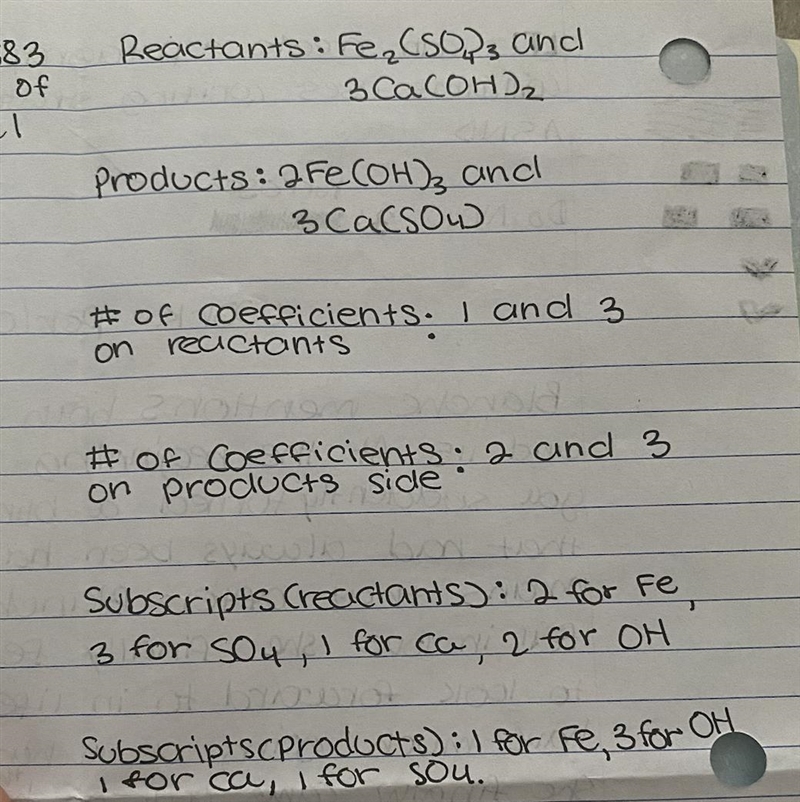 83 Reactants: Fe₂(SO₄)₃ and
of 3Ca(OH)₂
1
Products: 2Fe(OH)₃ and
3Ca(SO4)
# of coefficients: 1 and 3
on reactants
# of coefficients: 2 and 3
on products side
Subscripts (reactants): 2 for Fe,
3 for SO4, 1 for Ca, 2 for OH
Subscripts(products): 1 for Fe, 3 for OH
1 for Ca, 1 for SO4.